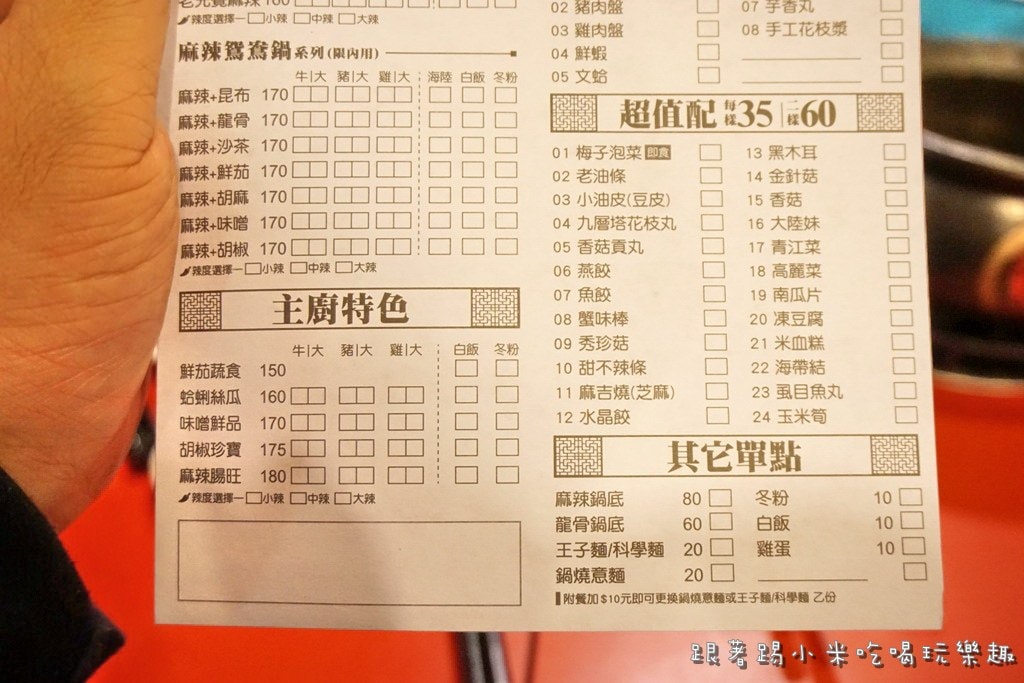 辣度選擇一 □小辣 □中辣 □大辣
麻辣鴛鴦鍋系列(限內用)
牛|大 豬|大 雞|大 海陸 白飯 冬粉
麻辣+昆布 170
麻辣+龍骨 170
麻辣+沙茶 170
麻辣+鮮茄 170
麻辣+胡麻 170
麻辣+味噌 170
麻辣+胡椒 170
辣度選擇一 □小辣 □中辣 □大辣
主廚特色
牛|大 豬|大 雞|大 白飯 冬粉
鮮茄蔬食 150
蛤蜊絲瓜 160
味噌鮮品 170
胡椒珍寶 175
麻辣腸旺 180
辣度選擇一 □小辣 □中辣 □大辣
02 豬肉盤
03 雞肉盤
04 鮮蝦
05 文蛤
07 芋香丸
08 手工花枝漿
超值配 每樣35 二樣60
01 梅子泡菜 即食
02 老油條
03 小油皮(豆皮)
04 九層塔花枝丸
05 香菇貢丸
06 燕餃
07 魚餃
08 蟹味棒
09 秀珍菇
10 甜不辣條
11 麻吉燒(芝麻)
12 水晶餃
13 黑木耳
14 金針菇
15 香菇
16 大陸妹
17 青江菜
18 高麗菜
19 南瓜片
20 凍豆腐
21 米血糕
22 海帶結
23 虱目魚丸
24 玉米筍
其它單點
麻辣鍋底 80
龍骨鍋底 60
王子麵/科學麵 20
鍋燒意麵 20
冬粉 10
白飯 10
雞蛋 10
附餐加$10元即可更換鍋燒意麵或王子麵/科學麵 乙份
跟著踢小米吃喝玩樂趣